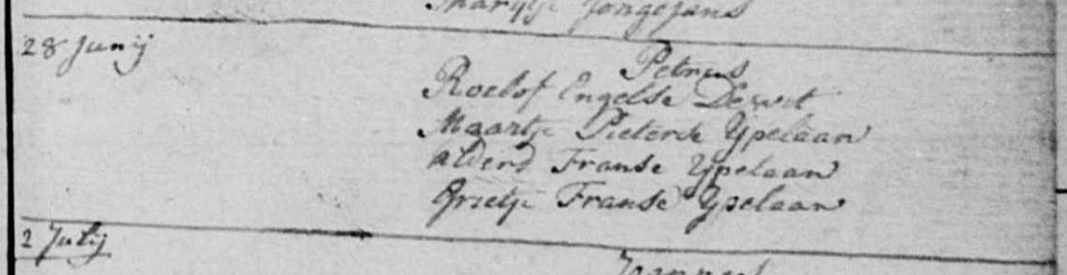 Marijtje Jongejans
28 Junij
Petrus
Roelof Engelse Dewit
Maartje Pieterse Ypelaan
Alderd Franse Ypelaan
Grietje Franse Ypelaan
2 Julij